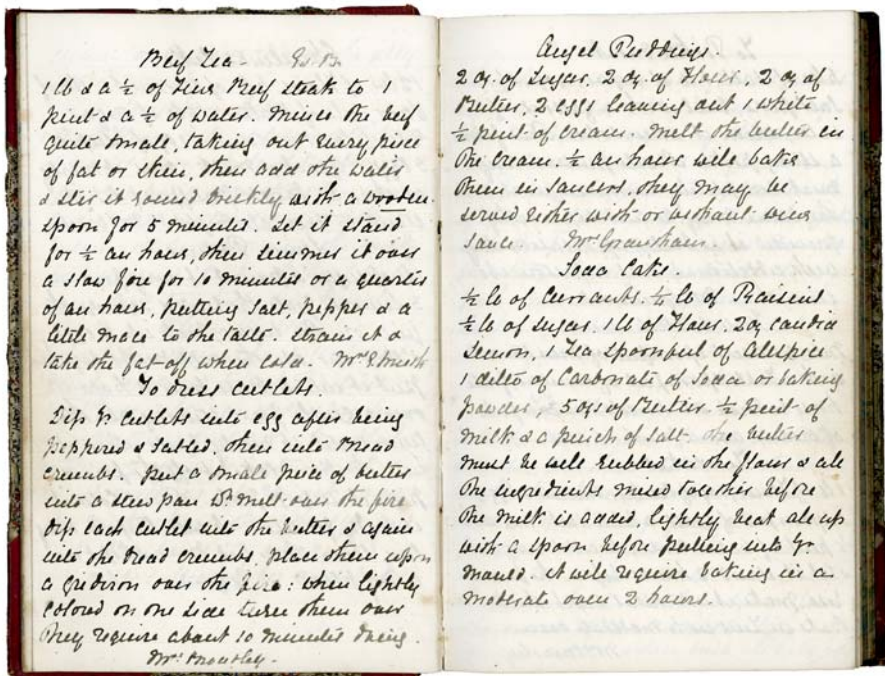 Beef Tea.
1 lb & a ½ of Lean Beef steak to 1
pint & a ½ of water. Mince the beef
quite small, taking out every piece
of fat or skin, then add the water
& stir it round briskly with a wooden
spoon for 5 minutes. Let it stand
for ½ an hour, then simmer it over
a slow fire for 10 minutes or a quarter
of an hour, putting salt, pepper & a
little mace to the taste. Strain it &
take the fat off when cold. Mrs
To dress cutlets.
Dip yr cutlets into egg after being
peppered & salted, then into bread
crumbs. put a small piece of butter
into a stew pan wh. melt over the fire
dip each cutlet into the butter & again
into the bread crumbs, place them upon
a gridiron over the fire: when lightly
colored on one side turn them over
They require about 10 minutes doing.
Mrs
Angel Puddings.
2 oz. of Sugar. 2 oz. of Flour, 2 oz of
Butter, 2 eggs leaving out 1 white
½ pint of cream. melt the butter in
the cream. ½ an hour will bake
them in saucers, they may be
served either with or without wine
sauce. Mrs
Soda Cake
½ lb of Currants. ½ lb of Raisins
½ lb of sugar. 1 lb of Flour. 2 oz candied
Lemon. 1 Tea spoonful of Allspice
1 ditto of Carbonate of Soda or baking
powder, 5 ozs of Butter. ½ pint of
milk & a pinch of salt. The butter
must be well rubbed in the flour & all
the ingredients mixed together before
the milk is added, lightly beat all up
with a spoon before putting into yr
mould. it will require baking in a
moderate oven 2 hours.